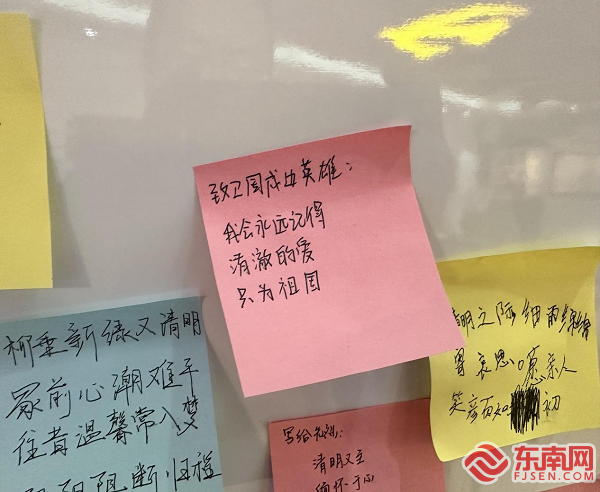 致卫国戍边英雄：
我会永远记得
清澈的爱
只为祖国
柳垂新绿又清明
冢前心潮难平
往昔温馨常入梦
阻断归程
清明之际细雨绵绵
寄哀思。愿亲人
笑彦百如初
写给
清明又立
缅怀于心
东南网
FJSEN.COM